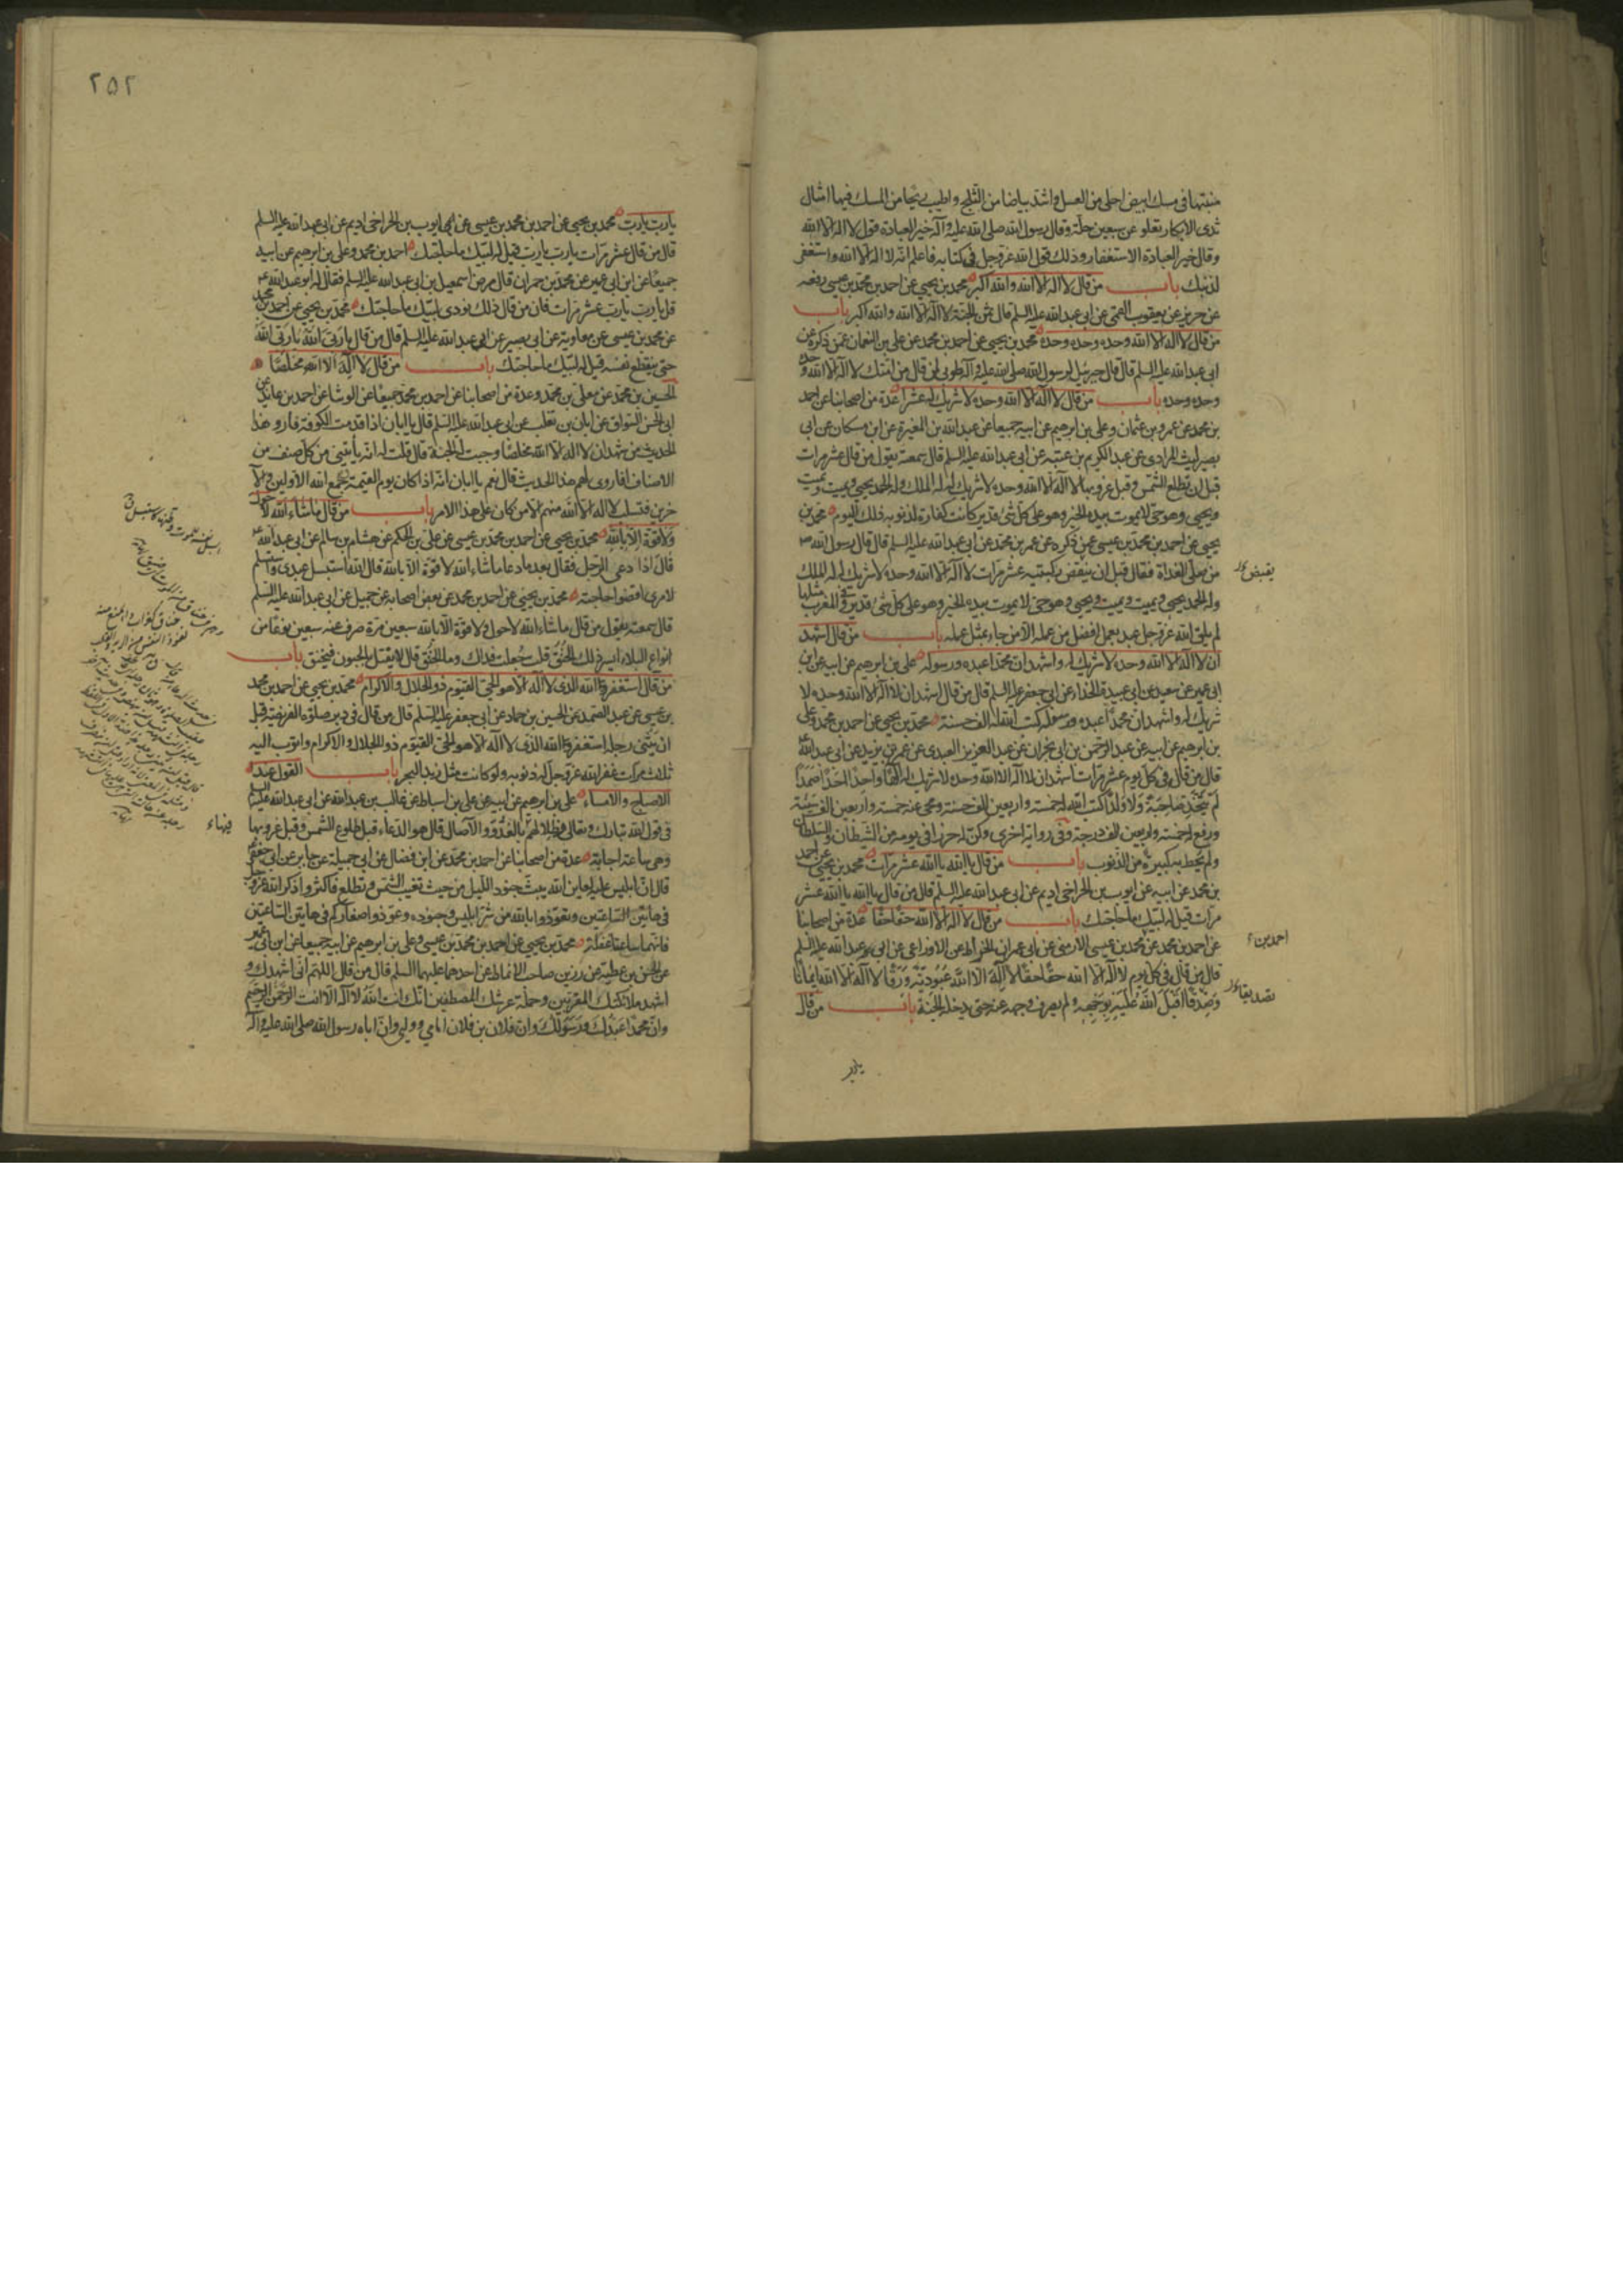 منبتها فى مسك ابيض احلى من العسل واشد بياضا من الثلج واطيب ريحا من المسك فيها امثال
ثدى الابكار تعلو عن سبعين حلة وقال رسول الله صلى الله عليه وآله خير العبادة قول لا اله الا الله
وقال خير العبادة الاستغفار وذلك قول الله عز وجل فى كتابه فاعلم انه لا اله الا الله واستغفر
لذنبك باب من قال لا اله الا الله والله اكبر محمد بن يحيى عن احمد بن محمد بن عيسى رفعه
عن حريز عن يعقوب القمى عن ابى عبد الله عليه السلم قال ثمن الجنة لا اله الا الله والله اكبر باب
من قال لا اله الا الله وحده وحده وحده محمد بن يحيى عن احمد بن محمد عن على بن النعمان عمن ذكره عن
ابى عبد الله عليه السلم قال قال جبرئيل لرسول الله صلى الله عليه وآله طوبى لمن قال من امتك لا اله الا الله وحده
وحده وحده باب من قال لا اله الا الله وحده لا شريك له عشرا عدة من اصحابنا عن احمد
بن محمد عن عمرو بن عثمان وعلى بن ابرهيم عن ابيه جميعا عن عبد الله بن المغيرة عن ابن مسكان عن ابى
بصير ليث المرادى عن عبد الكريم بن عتبة عن ابى عبد الله عليه السلم قال سمعته يقول من قال عشر مرات
قبل ان تطلع الشمس وقبل غروبها لا اله الا الله وحده لا شريك له له الملك وله الحمد يحيى ويميت ويميت
ويحيى وهو حى لا يموت بيده الخير وهو على كل شئ قدير كانت كفارة لذنوبه ذلك اليوم محمد بن
يحيى عن احمد بن محمد بن عيسى عمن ذكره عن عمر بن محمد عن ابى عبد الله عليه السلم قال قال رسول الله ص
من صلى الغداة فقال قبل ان ينقض ركبتيه عشر مرات لا اله الا الله وحده لا شريك له له الملك
وله الحمد يحيى ويميت ويميت ويحيى وهو حى لا يموت بيده الخير وهو على كل شئ قدير وفى المغرب مثلها
لم يلق الله عز وجل عبد بعمل افضل من عمله الا من جاء بمثل عمله باب من قال اشهد
ان لا اله الا الله وحده لا شريك له واشهد ان محمدا عبده ورسوله على بن ابرهيم عن ابيه عن ابن
ابى عمير عن سعيد عن ابى عبيدة الحذاء عن ابى جعفر عليه السلم قال من قال اشهد ان لا اله الا الله وحده لا
شريك له واشهد ان محمدا عبده ورسوله كتب الله له الف حسنة محمد بن يحيى عن احمد بن محمد وعلى
بن ابرهيم عن ابيه عن عبد الرحمن بن ابى نجران عن عبد العزيز العبدى عن عمر بن يزيد عن ابى عبد الله ع
قال من قال فى كل يوم عشر مرات اشهد ان لا اله الا الله وحده لا شريك له الها واحدا احدا صمدا
لم يتخذ صاحبة ولا ولدا كتب الله له خمسة واربعين الف حسنة ومحى عنه خمسة واربعين الف سيئة
ورفع له خمسة واربعين الف درجة وفى رواية اخرى وكن له حرزا فى يومه من الشيطان والسلطان
ولم تحط به كبيرة من الذنوب باب من قال يا الله يا الله عشر مرات محمد بن يحيى عن احمد
بن محمد عن ابيه عن ايوب بن الحر اخى اديم عن ابى عبد الله عليه السلم قال من قال يا الله يا الله عشر
مرات قيل له لبيك ما حاجتك باب من قال لا اله الا الله حقا حقا عدة من اصحابنا
عن احمد بن محمد عن محمد بن عيسى الارمنى عن ابى عمران الخراط عن الاوزاعى عن ابى عبد الله عليه السلم
قال من قال فى كل يوم لا اله الا الله حقا حقا لا اله الا الله عبودية ورقا لا اله الا الله ايمانا
وصدقا اقبل الله عليه بوجهه ولم يصرف وجهه عنه حتى يدخل الجنة باب من قال
احمد بن
يا رب
٢٥٢
يا رب يا رب محمد بن يحيى عن احمد بن محمد بن عيسى عن ايوب بن الحر اخى اديم عن ابى عبد الله عليه السلم
قال من قال عشر مرات يا رب يا رب قيل له لبيك ما حاجتك احمد بن محمد وعلى بن ابرهيم عن ابيه
جميعا عن ابن ابى عمير عن محمد بن حمران قال مرض اسمعيل بن ابى عبد الله عليه السلم فقال له ابو عبد الله ع
قل يا رب يا رب عشر مرات فان من قال ذلك نودى لبيك ما حاجتك محمد بن يحيى عن احمد بن محمد
عن محمد بن عيسى عن معاوية عن ابى بصير عن ابى عبد الله عليه السلم قال من قال يا ربى الله يا ربى الله
حتى ينقطع نفسه قيل له لبيك ما حاجتك باب من قال لا اله الا الله مخلصا
الحسين بن محمد عن معلى بن محمد وعدة من اصحابنا عن احمد بن محمد جميعا عن الوشا عن احمد بن عائذ عن
ابى الحسن السواق عن ابان بن تغلب عن ابى عبد الله عليه السلم قال يا ابان اذا قدمت الكوفة فارو هذا
الحديث من شهد ان لا اله الا الله مخلصا وجبت له الجنة قال قلت له انه يأتينى من كل صنف من
الاصناف افاروى لهم هذا الحديث قال نعم يا ابان انه اذا كان يوم القيمة وجمع الله الاولين والآ
خرين فتسلب لا اله الا الله منهم الا من كان على هذا الامر باب من قال ما شاء الله لا حول
ولا قوة الا بالله محمد بن يحيى عن احمد بن محمد بن عيسى عن على بن الحكم عن هشام بن سالم عن ابى عبد الله ع
قال اذا دعى الرجل فقال بعد ما دعا ما شاء الله لا قوة الا بالله قال الله استبسل عبدى واستسلم
لامرى اقضوا حاجته محمد بن يحيى عن احمد بن محمد عن بعض اصحابه عن جميل عن ابى عبد الله عليه السلم
قال سمعته يقول من قال ما شاء الله لا حول ولا قوة الا بالله سبعين مرة صرف عنه سبعين نوعا من
انواع البلاء ايسر ذلك الخنق قلت جعلت فداك وما الخنق قال لا يعتل بالجنون فيخنق باب
من قال استغفر الله الذى لا اله الا هو الحى القيوم ذو الجلال والاكرام محمد بن يحيى عن احمد بن محمد
بن عيسى عن عبد الصمد عن الحسين بن حماد عن ابى جعفر عليه السلم قال من قال فى دبر صلوة الفريضة قبل
ان يثنى رجله استغفر الله الذى لا اله الا هو الحى القيوم ذو الجلال والاكرام واتوب اليه
ثلاث مرات غفر الله عز وجل له ذنوبه ولو كانت مثل زبد البحر باب القول عند
الاصباح والامساء على بن ابرهيم عن ابيه عن على بن اسباط عن غالب بن عبد الله عن ابى عبد الله عليه السلم
فى قول الله تبارك وتعالى وظلالهم بالغدو والآصال قال هو الدعاء قبل طلوع الشمس وقبل غروبها
وهى ساعة اجابة عدة من اصحابنا عن احمد بن محمد عن ابن فضال عن ابى جميلة عن جابر عن ابى جعفر ع
قال ان ابليس عليه لعاين الله يبث جنود الليل من حيث تغيب الشمس وتطلع فاكثروا ذكر الله عز وجل
فى هاتين الساعتين وتعوذوا بالله من شر ابليس وجنوده وعوذوا صغاركم فى هاتين الساعتين
فانهما ساعتا غفلة محمد بن يحيى عن احمد بن محمد بن عيسى وعلى بن ابرهيم عن ابيه جميعا عن ابن ابى عمير
عن الحسن بن عطية عن رزين صاحب الانماط عن احدهما عليهما السلم قال من قال اللهم انى اشهدك و
اشهد ملائكتك المقربين وحملة عرشك المصطفين انك انت الله لا اله الا انت الرحمن الرحيم
وان محمدا عبدك ورسولك وان فلان بن فلان امامى ووليى وان اباه رسول الله صلى الله عليه وآله